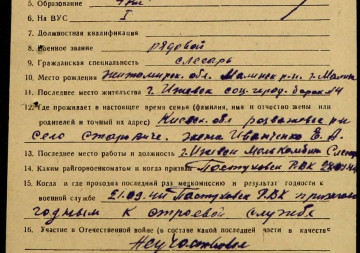 5. Образование
6. На ВУС I
7. Должностная квалификация
8. Военное звание рядовой
9. Гражданская специальность слесарь
10. Место рождения Житомирск. обл. Малинск р-н г. Малин
11. Последнее место жительства г. Ижевск соц. город. барак 14
12. Где проживает в настоящее время семья (фамилия, имя и отчество жены или
родителей и точный их адрес) Киевск. обл
село жена Иванченко Е. А.
13. Последнее место работы и должность г. Ижевск
14. Каким райгорвоенкоматом и когда призван Пастуховск РВК
15. Когда и где проходил последний раз медкомиссию и результат годности к
военной службе 21.09.41 Пастуховск РВК признан
годным к строевой службе
16. Участие в Отечественной войне (в составе какой последней части в качестве
Не участвовал